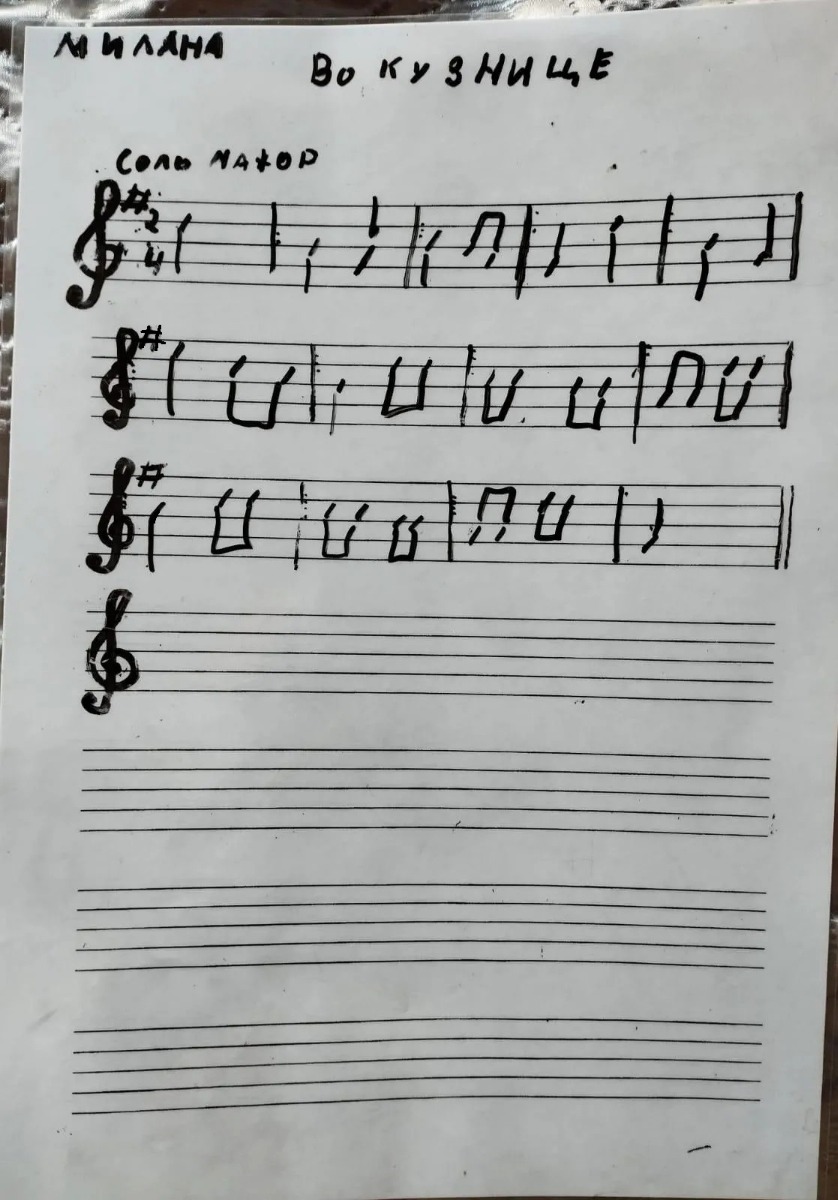 МИЛАНА
ВО КУЗНИЦЕ
СОЛЬ МАЖОР
2
4